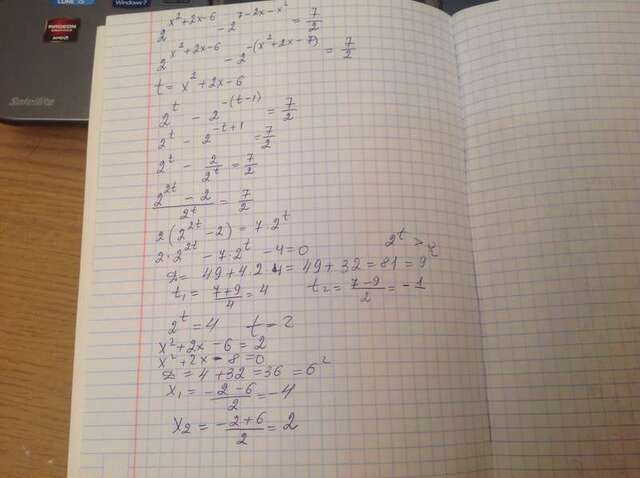 CORE i5
Windows 7
RADEON
GRAPHICS
AMD
Satellite
2^(x²+2x-6) - 2^(7-2x-x²) = 7/2
2^(x²+2x-6) - 2^(-(x²+2x-7)) = 7/2
t = x²+2x-6
2^t - 2^(-(t-1)) = 7/2
2^t - 2^(-t+1) = 7/2
2^t - 2/2^t = 7/2
(2^(2t) - 2)/2^t = 7/2
2(2^(2t) - 2) = 7·2^t
2·2^(2t) - 7·2^t - 4 = 0 2^t >
D = 49+4·2·4 = 49+32 = 81 = 9²
t₁ = (7+9)/4 = 4 t₂ = (7-9)/2 = -1
2^t = 4 t = 2
x²+2x-6 = 2
x²+2x-8 = 0
D = 4+32 = 36 = 6²
x₁ = (-2-6)/2 = -4
x₂ = (-2+6)/2 = 2